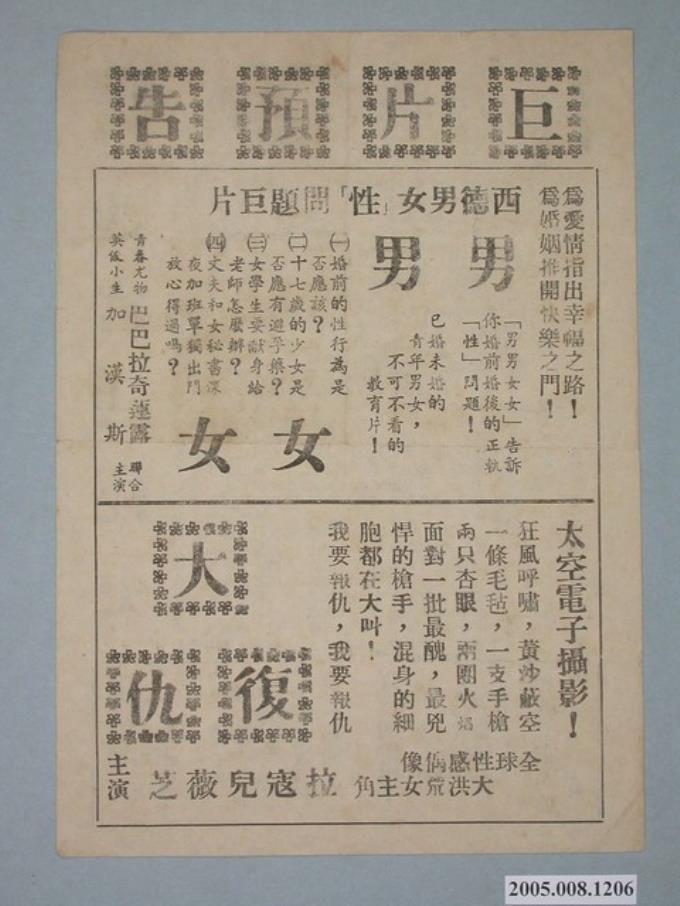 巨片預告
為愛情指出幸福之路！
為婚姻推開快樂之門！
西德男女「性」問題巨片
男男女女
「男男女女」告訴
你婚前婚後的正軌
「性」問題！
已婚未婚的
青年男女，
不可不看的
教育片！
㈠婚前的性行為是
否應該？
㈡十七歲的少女是
否應有避孕藥？
㈢女學生要獻身給
老師怎麼辦？
㈣丈夫和女秘書深
夜加班單獨出門
放心得過嗎？
青春尤物 巴巴拉奇蓮露
英俊小生 加漢斯
聯合
主演
太空電子攝影！
狂風呼嘯，黃沙蔽空
一條毛毡，一支手槍
兩只杏眼，兩團火焰
面對一批最醜，最兇
悍的槍手，混身的細
胞都在大叫！
我要報仇，我要報仇
大復仇
全球性感偶像
大洪荒女主角
拉寇兒薇芝
主演
2005.008.1206